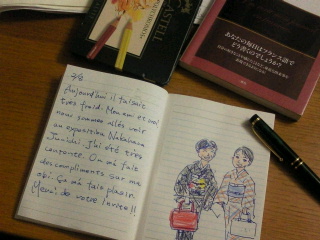 CASTELL
あなたの毎日はフランス語で
どう書くのでしょうか?
7/2
Aujourd'hui il faisait
très froid. Mon ami et moi
nous sommes allés voir
un exposition Nakahara
Junichi. J'ai été très
contente. On m'a fait
des compliments sur mon
obi. Ça m'a fait plaisir.
Merci de votre invite!!